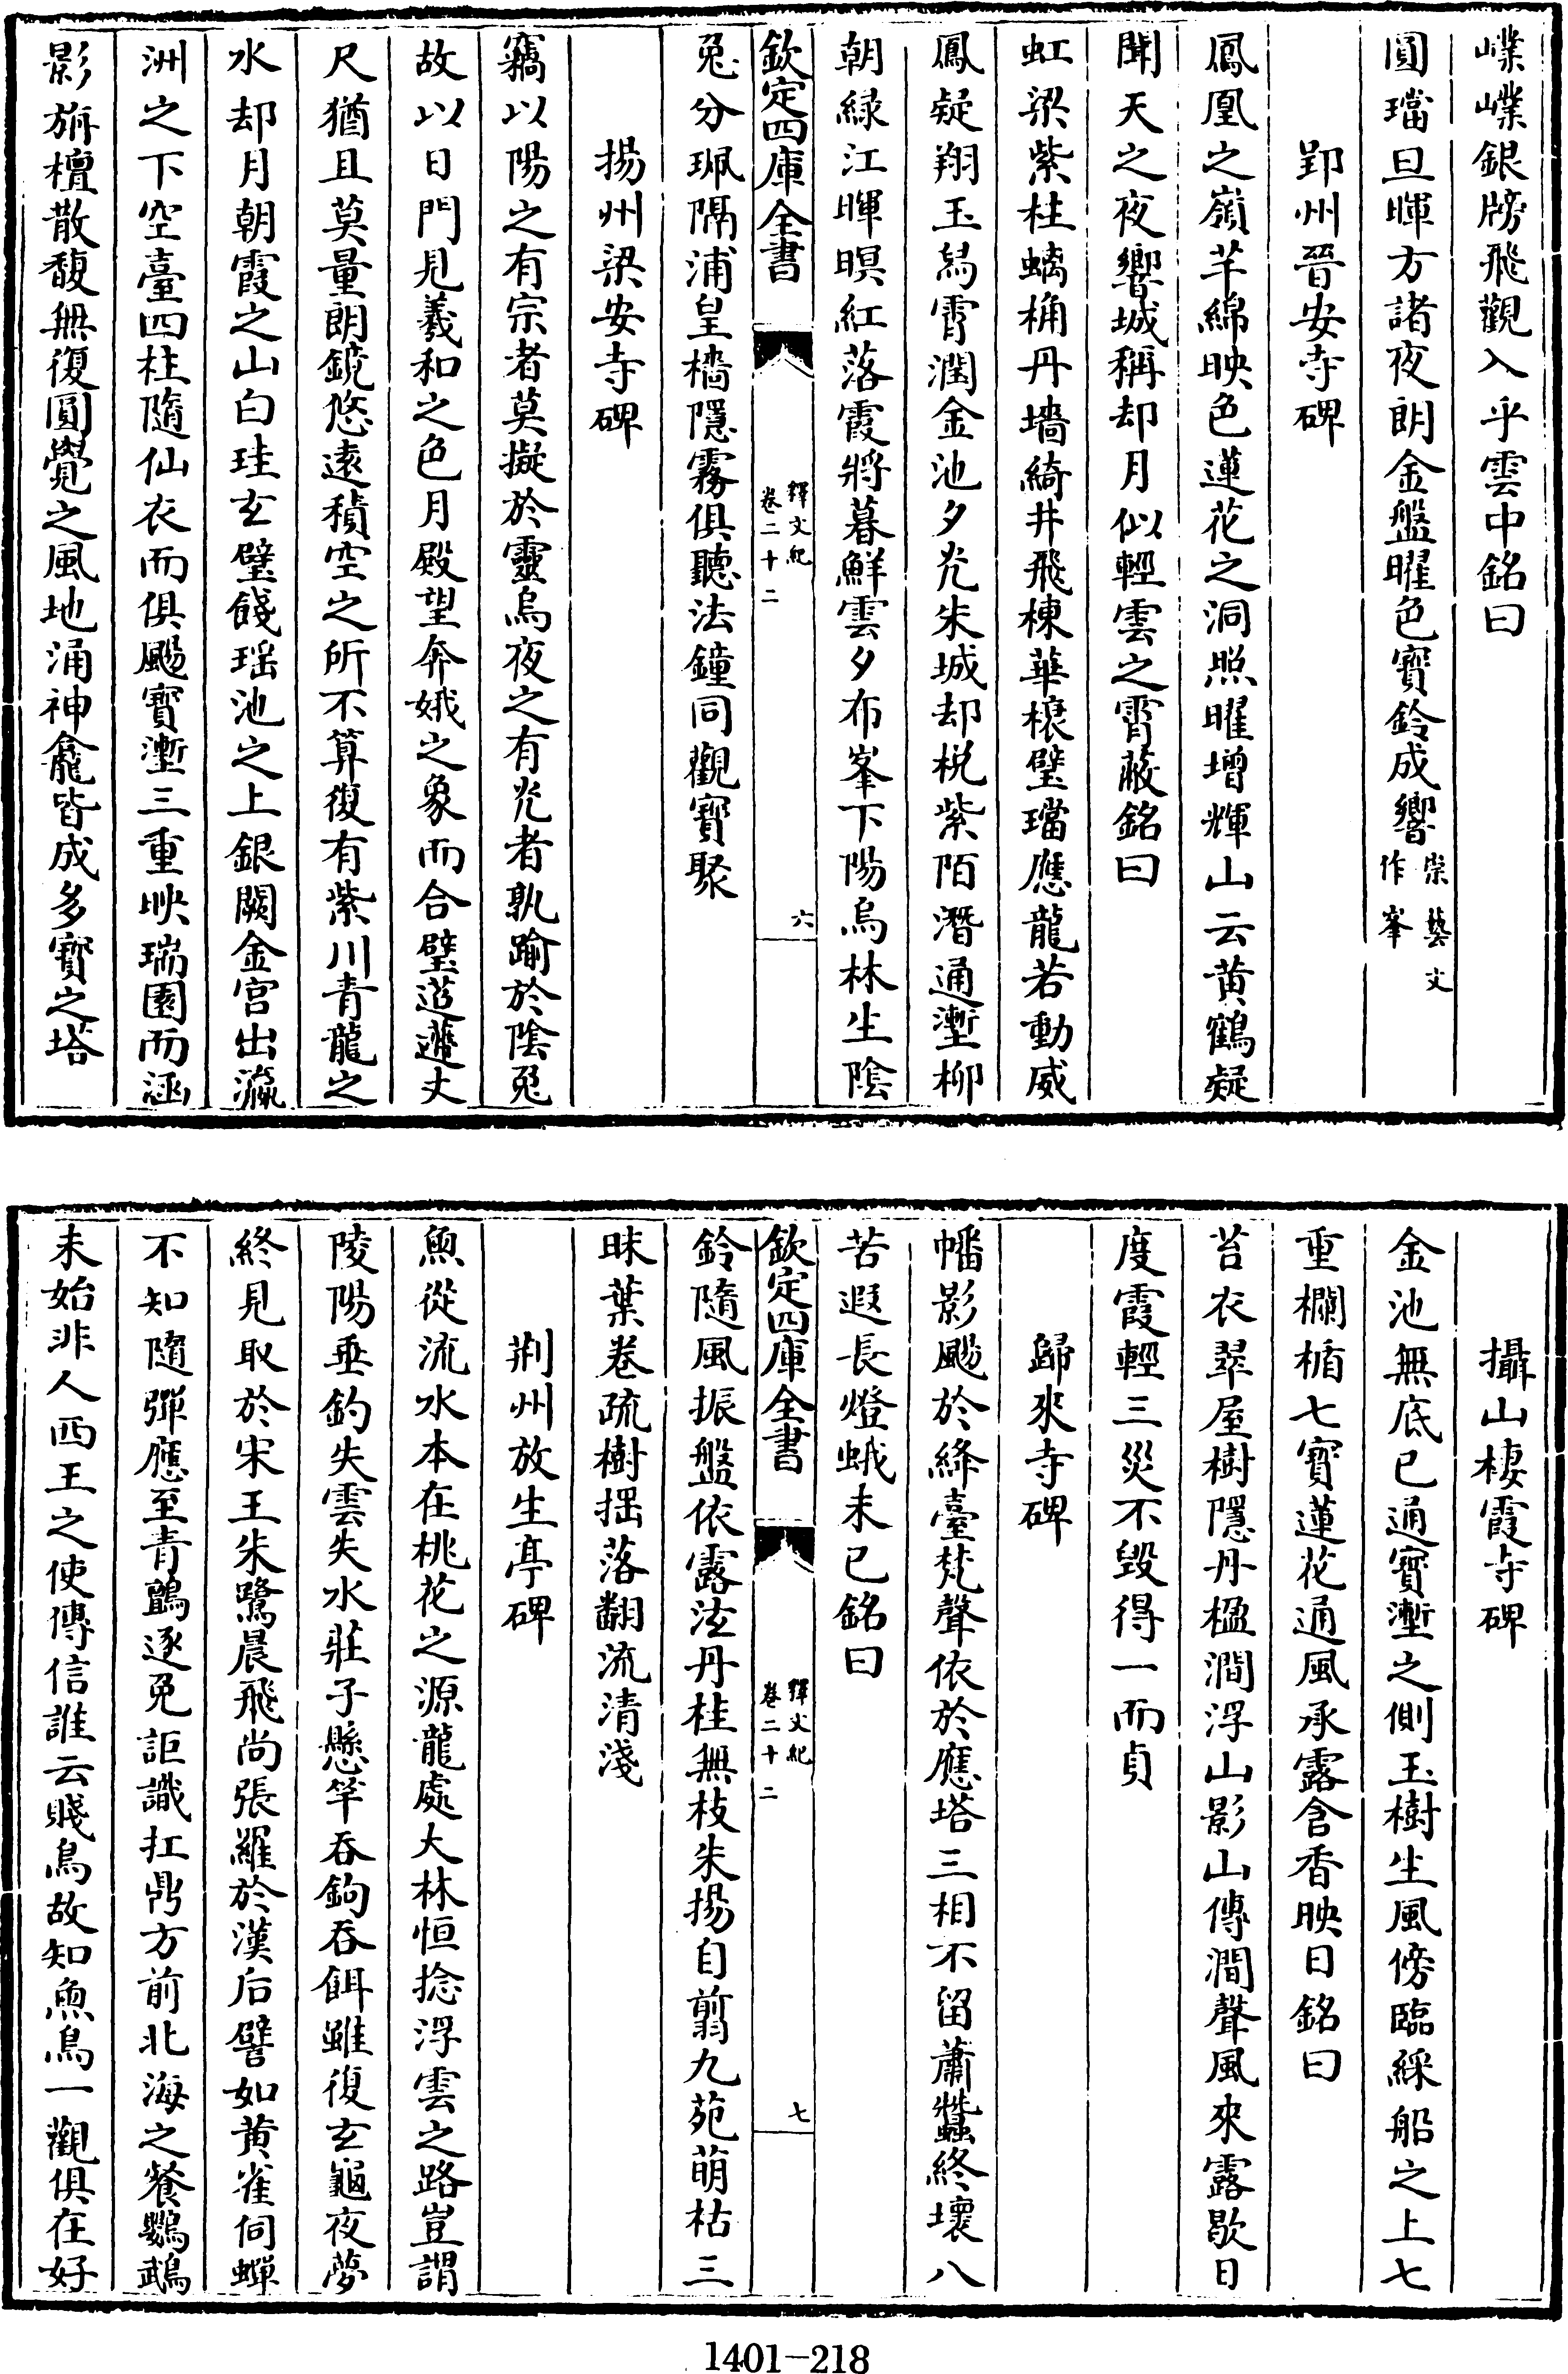 嶫嶫銀牓飛觀入乎雲中銘曰
圓璫旦暉方諸夜朗金盤曜色寳鈴成響崇藝文作峯
郢州晉安寺碑
鳳凰之嶺芊綿映色蓮花之洞照曜增輝山云黄鶴疑
聞天之夜響城稱却月似輕雲之霄蔽銘曰
虹梁紫柱螭桷丹墻綺井飛棟華榱璧璫應龍若動威
鳳疑翔玉舄霄潤金池夕光朱城却枕紫陌潛通塹柳
朝緑江暉暝紅落霞將暮鮮雲夕布峯下陽烏林生陰
欽定四庫全書
釋文紀
卷二十二
六
兎分珮隔浦皇檣隱霧俱聽法鐘同觀寳聚
揚州梁安寺碑
竊以陽之有宗者莫擬於靈烏夜之有光者孰踰於陰兎
故以日門見羲和之色月殿望奔娥之象而合璧迢遰丈
尺猶且莫量朗鏡悠遠積空之所不算復有紫川青龍之
水却月朝霞之山白珪玄璧餞瑶池之上銀闕金宮出瀛
洲之下空臺四柱隨仙衣而俱颺寳塹三重映瑞園而涵
影旃檀散馥無復圓覺之風地涌神龕皆成多寳之塔
攝山棲霞寺碑
金池無底已通寳塹之側玉樹生風傍臨綵船之上七
重欄楯七寳蓮花通風承露含香映日銘曰
苔衣翠屋樹隱丹楹澗浮山影山傳澗聲風來露歇日
度霞輕三災不毁得一而貞
歸來寺碑
幡影颺於絳臺梵聲依於應塔三相不留蕭蠶終壞八
苦遐長燈蛾未已銘曰
欽定四庫全書
釋文紀
卷二十二
七
鈴隨風振盤依露泫丹桂無枝朱揚自翦九苑萌枯三
昧葉卷疏樹揺落翻流清淺
荆州放生亭碑
魚從流水本在桃花之源龍處大林恒捻浮雲之路豈謂
陵陽垂釣失雲失水莊子懸竿吞鉤吞餌雖復玄龜夜夢
終見取於宋王朱鷺晨飛尚張羅於漢后譬如黄雀伺蟬
不知隨彈應至青鸇逐兎詎識扛鼎方前北海之餐鸚鵡
未始非人西王之使傳信誰云賤鳥故知魚鳥一觀俱在好
1401-218